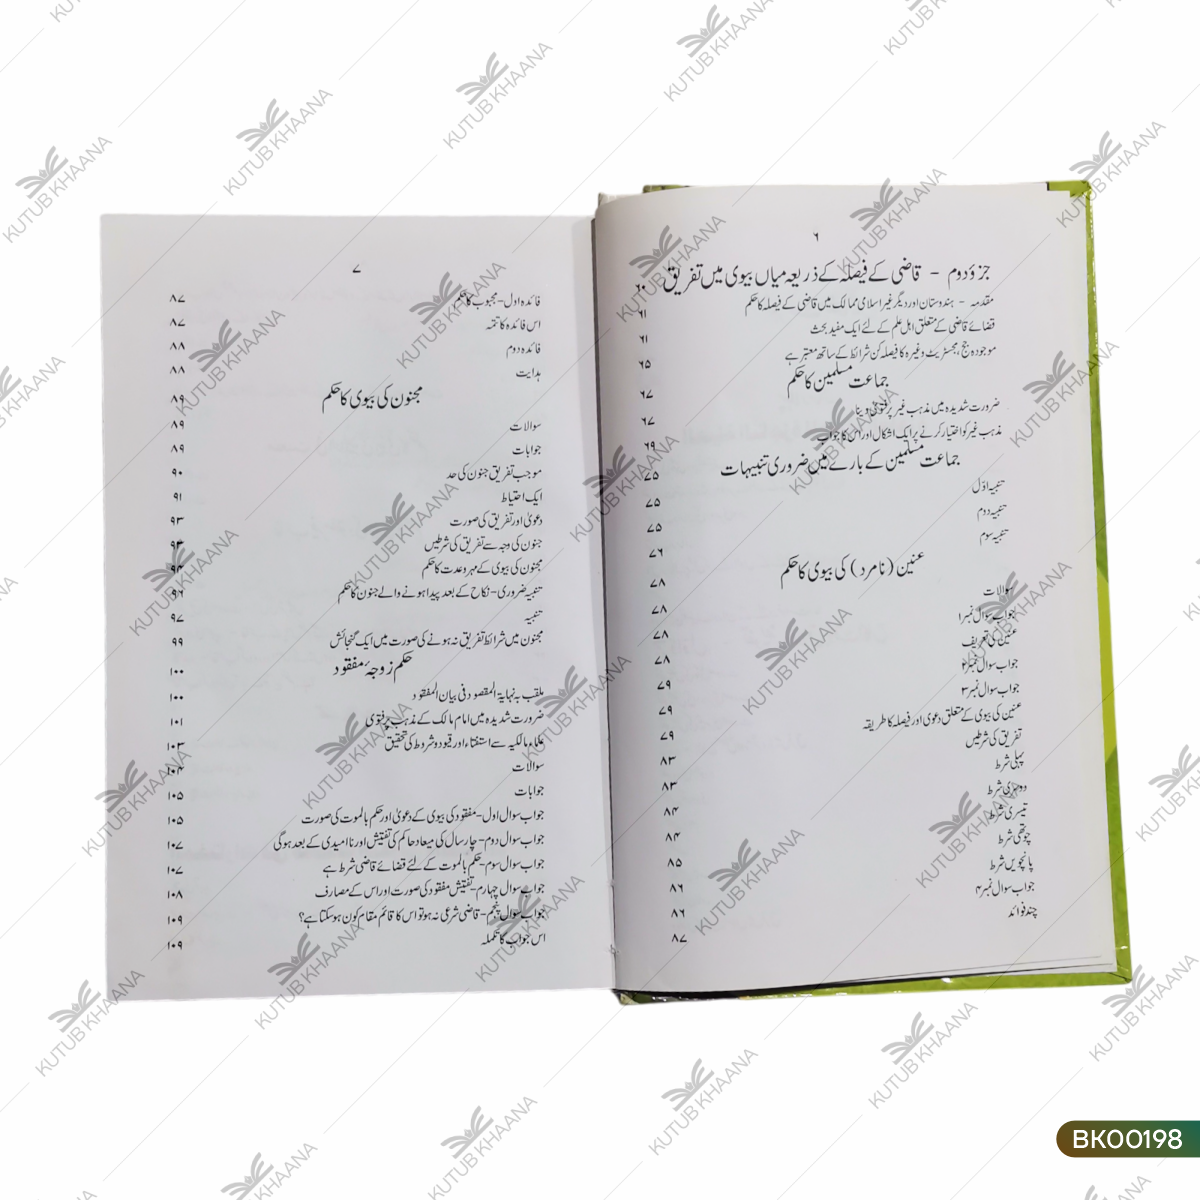 ۶
جزؤ دوم - قاضی کے فیصلہ کے ذریعہ میاں بیوی میں تفریق ۶۰
مقدمہ - ہندوستان اور دیگر غیر اسلامی ممالک میں قاضی کے فیصلہ کا حکم ۶۱
قضائے قاضی کے متعلق اہل علم کے لئے ایک مفید بحث ۶۱
موجودہ جج، مجسٹریٹ وغیرہ کا فیصلہ کن شرائط کے ساتھ معتبر ہے ۶۵
جماعت مسلمین کا حکم ۶۷
ضرورت شدیدہ میں مذہب غیر پر فتویٰ دینا ۶۷
مذہب غیر کو اختیار کرنے پر ایک اشکال اور اس کا جواب ۶۹
جماعت مسلمین کے بارے میں ضروری تنبیہات ۷۵
تنبیہ اوّل ۷۵
تنبیہ دوم ۷۵
تنبیہ سوم ۷۶
عنین (نامرد) کی بیوی کا حکم ۷۸
سوالات ۷۸
جواب سوال نمبر۱ ۷۸
عنین کی تعریف ۷۸
جواب سوال نمبر۲ ۷۹
جواب سوال نمبر۳ ۷۹
عنین کی بیوی کے متعلق دعویٰ اور فیصلہ کا طریقہ ۷۹
تفریق کی شرطیں ۸۳
پہلی شرط ۸۳
دوسری شرط ۸۴
تیسری شرط ۸۴
چوتھی شرط ۸۵
پانچویں شرط ۸۶
جواب سوال نمبر۴ ۸۶
چند فوائد ۸۷
۷
فائدہ اول- مجبوب کا حکم ۸۷
اس فائدہ کا تتمہ ۸۷
فائدہ دوم ۸۸
ہدایت ۸۸
مجنون کی بیوی کا حکم ۸۹
سوالات ۸۹
جوابات ۸۹
موجب تفریق جنون کی حد ۹۰
ایک احتیاط ۹۱
دعویٰ اور تفریق کی صورت ۹۳
جنون کی وجہ سے تفریق کی شرطیں ۹۳
مجنون کی بیوی کے مہر و عدت کا حکم ۹۴
تنبیہ ضروری- نکاح کے بعد پیدا ہونے والے جنون کا حکم ۹۶
تنبیہ ۹۷
مجنون میں شرائط تفریق نہ ہونے کی صورت میں ایک گنجائش ۹۹
حکم زوجۂ مفقود ۱۰۰
ملقب بہ نہایۃ المقصود فی بیان المفقود ۱۰۰
ضرورت شدیدہ میں امام مالک کے مذہب پر فتویٰ ۱۰۱
علماء مالکیہ سے استفتاء اور قیود و شروط کی تحقیق ۱۰۳
سوالات ۱۰۴
جوابات ۱۰۵
جواب سوال اول- مفقود کی بیوی کے دعویٰ اور حکم بالموت کی صورت ۱۰۵
جواب سوال دوم- چار سال کی میعاد حاکم کی تفتیش اور نا امیدی کے بعد ہوگی ۱۰۷
جواب سوال سوم- حکم بالموت کے لئے قضائے قاضی شرط ہے ۱۰۷
جواب سوال چہارم- تفتیش مفقود کی صورت اور اس کے مصارف ۱۰۸
جواب سوال پنجم- قاضی شرعی نہ ہو تو اس کا قائم مقام کون ہو سکتا ہے؟ ۱۰۹
اس جواب کا تکملہ ۱۰۹
KUTUB KHAANA
BK00198